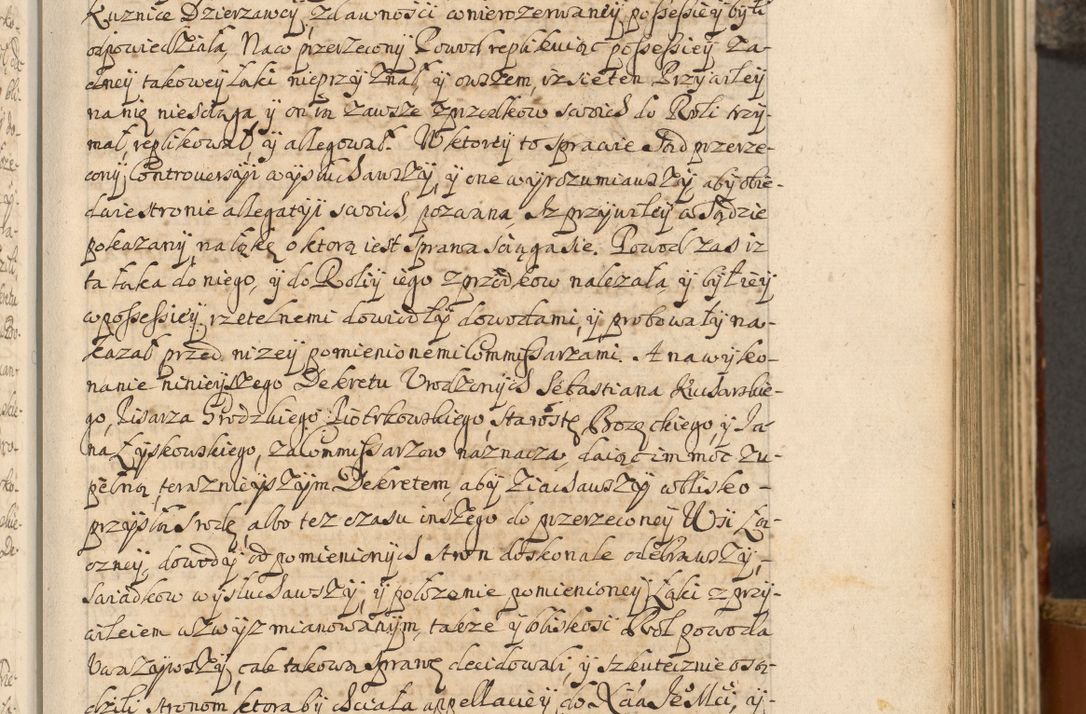 Kuznice Dzierzawcy, zdawnosci wnierozerwaney possessiey byli
odpowiedziała, Naco przerzecony Powod replikuiąc possessiey ża-
dney takowey Łaki nieprzyznał, y owszem, iz sie ten Przywiley
na nię niesciąga y on ią zawsze zprzodkow swoich do Roli trzy-
mał, replikował, y allegował. W ktorey to sprawie Sąd przerze-
cony Controuersyi wysłuchawszy, y one wyrozumiawszy, aby obie-
dwie stronie allegatyi swoich, pozwana, Iz przywiley w Sądzie
pokazany, na łąkę o ktorą iest sprawa sciąga sie. Powod zas iz
ta łaka do niego, y do Roliy iego zprzodkow nalezała y był iey
w possessiey, rzetelnemi dowiedły dowodami, y probowały na-
kazał przed nizey pomienionemi Commissarzami. A na wyko-
nanie ninieyszego Dekretu Urodzonych Sebastiana Kucharskie-
go, Pisarza Grodzkiego Piotrkowskiego, Starostę Brozęckiego, y Ja-
na Łyskowskiego, za Commissarzow naznacza, daiąc im moc zu-
pełną, teraznieyszym Dekretem, aby ziachawszy w blisko-
przyszłą srodę, albo tez czasu inszego do przerzeconey Wsi Ła-
ozney, dowody od pomienionych stron doskonale odebrawszy,
swiadkow wysłuchawszy, y położenie pomienioney Łąki z przy-
wileiem wzwyz mianowanym, takze y bliskosi Rol powoda
uwazywszy, całe takową sprawę decidowali, y szkutecznie osą-
dzili stronom ktoraby chciała appellaciey do Xcia Je Mci, y-